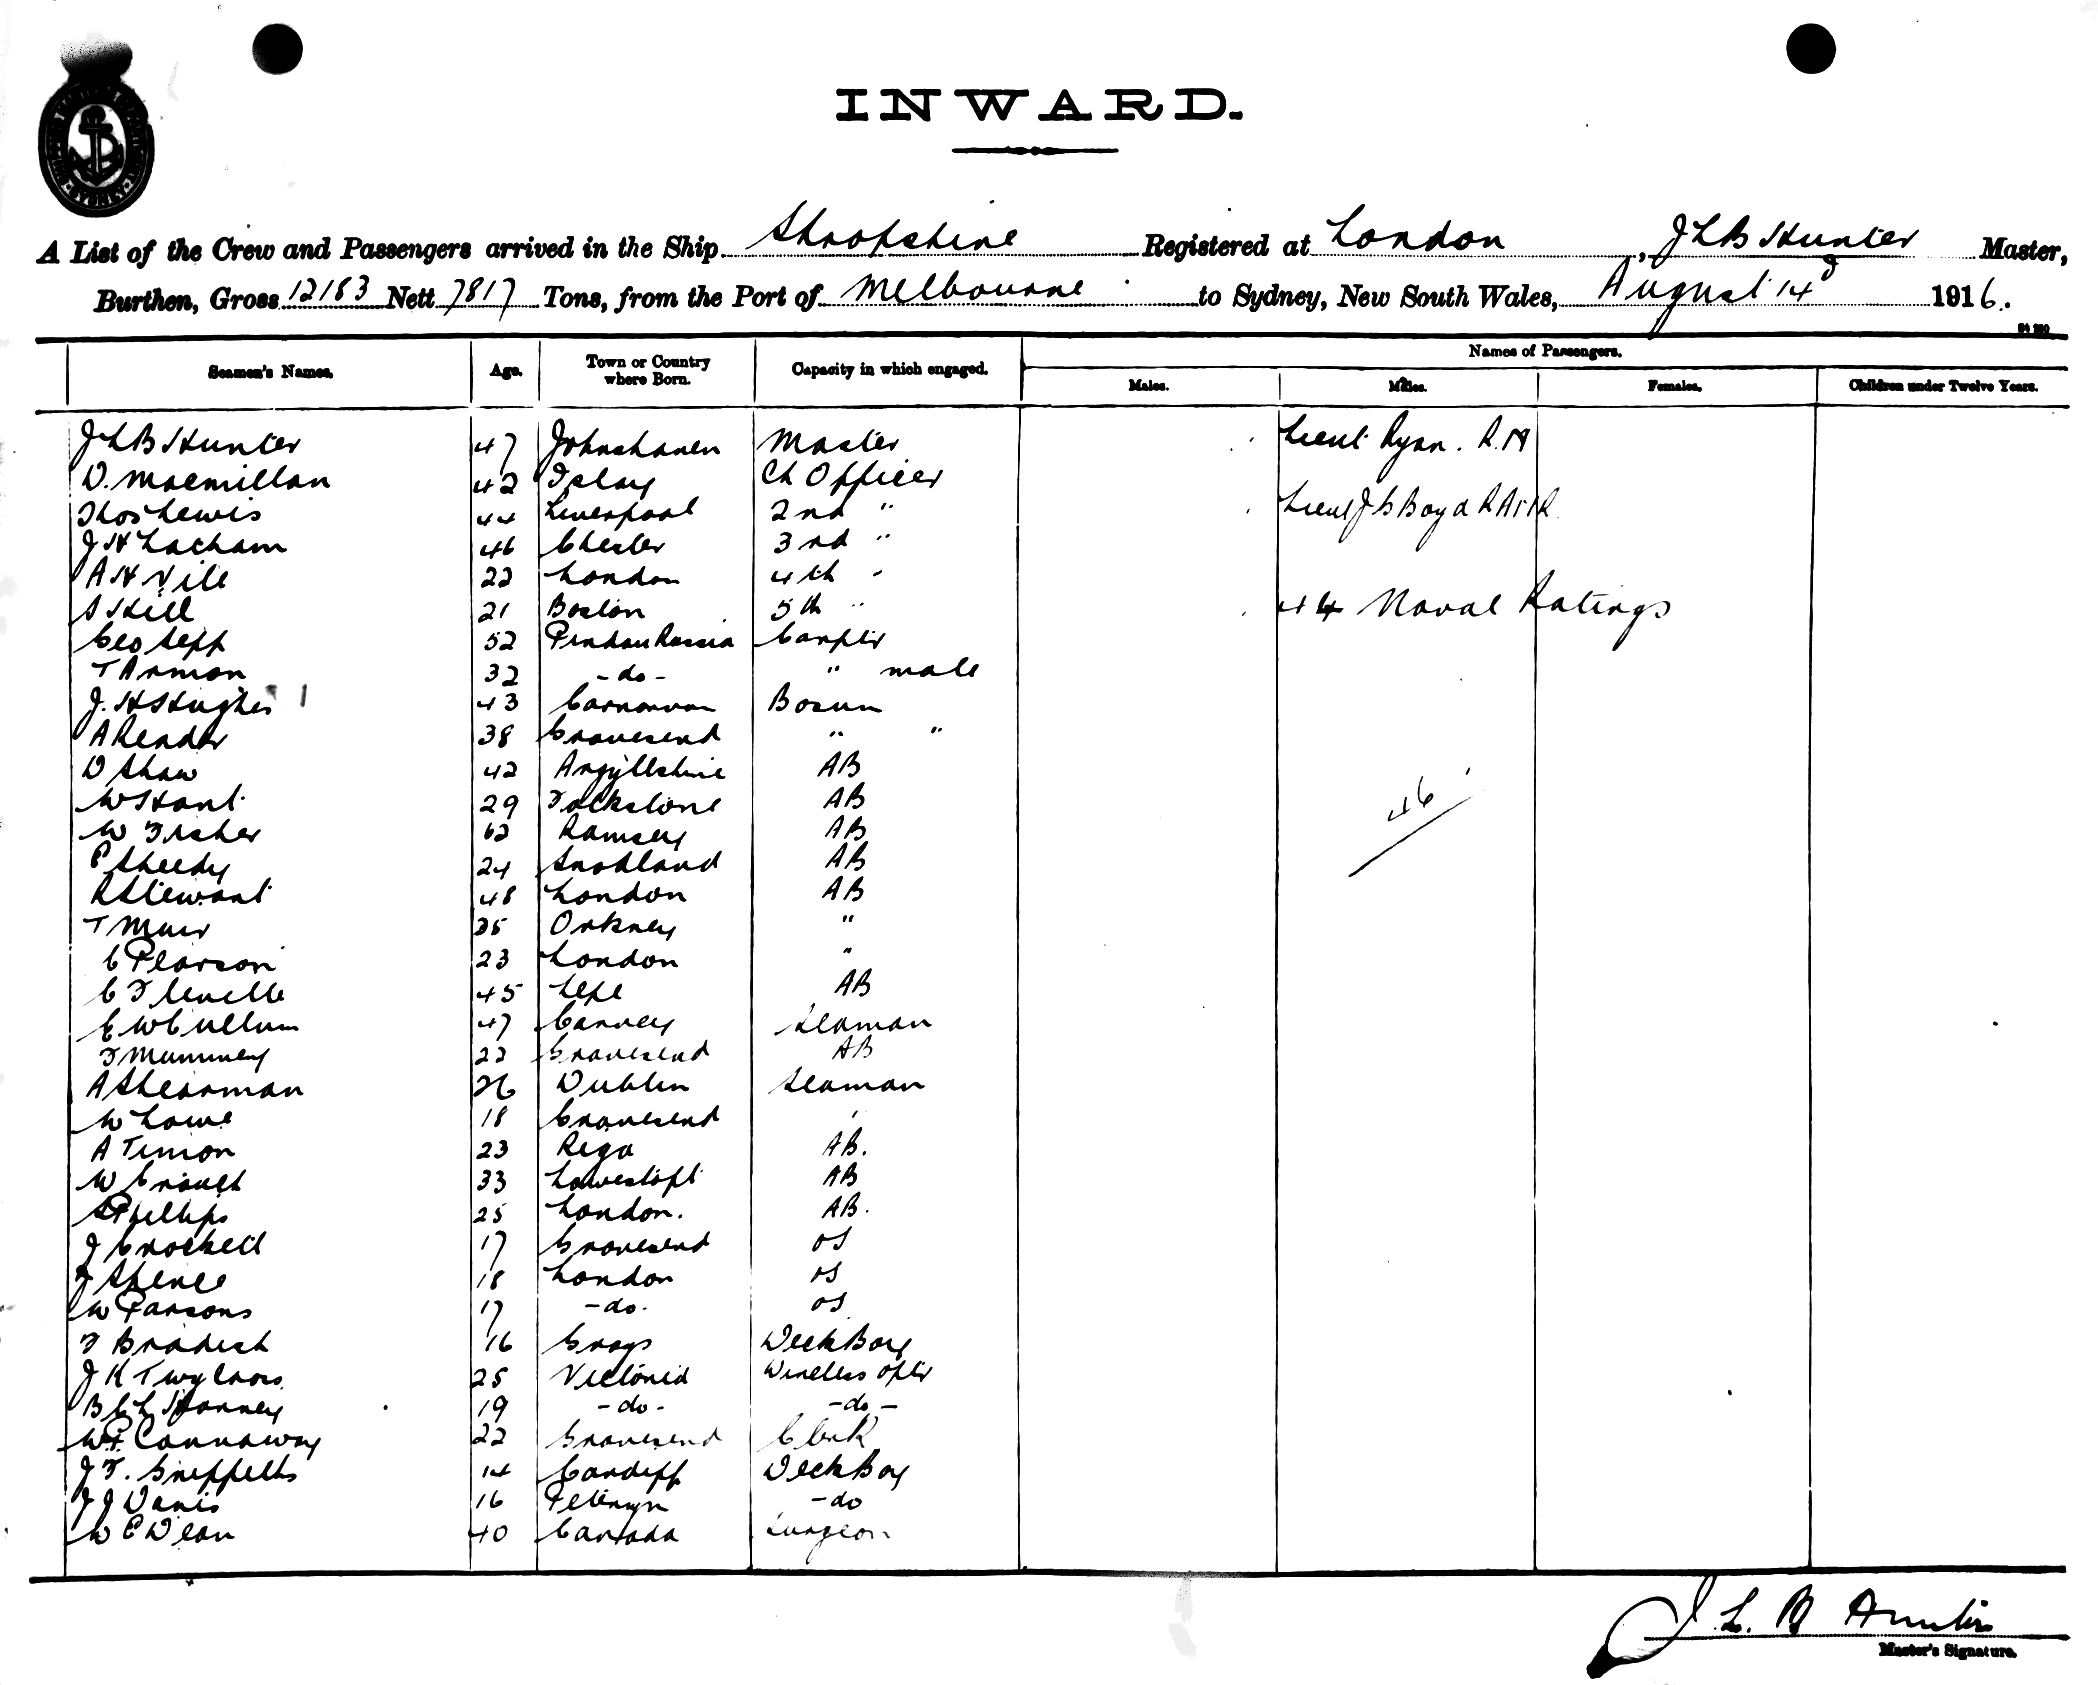 INWARD.
A List of the Crew and Passengers arrived in the Ship Shropshire Registered at London, J L B Hunter Master,
Burthen, Gross 12183 Nett 7817 Tons, from the Port of Melbourne to Sydney, New South Wales, August 14 1916.
Names of Passengers.
Seamen's Names. Age. Town or Country where Born. Capacity in which engaged. Males. Males. Females. Children under Twelve Years.
J L B Hunter 47 Johnshaven Master Lieut Ryan. R.N
D. Macmillan 42 Islay Ch Officer
Thos Lewis 44 Liverpool 2nd " Lieut J S Boyd
J H Latham 46 Chester 3rd "
A H Vile 22 London 4th "
S Hill 21 Boston 5th " 44 Naval Ratings
Geo Sepp 52 Russia Carpter
T Arman 32 -do- " mate
J. H Hughes 43 Carnarvon Bosun
A Reader 38 Gravesend " "
D Shaw 42 Argyllshire AB
W Hart 29 Folkstone AB
46
W Fisher 62 Ramsey AB
P Sheedy 24 Auckland AB
R Stewart 48 London AB
T Muir 35 Orkney "
C Pearson 23 London "
45 AB
C W Cullum 47 Canvey Seaman
F Mummey 22 Gravesend AB
A Shearman 26 Dublin Seaman
W Lowe 18 Gravesend "
A Timon 23 Riga AB.
W Crouch 33 Lowestoft AB
S Phillips 25 London. AB.
J Crockett 17 Gravesend OS
J Spence 18 London OS
W Parsons 17 -do- OS
F Bradish 16 Grays Deck Boy
J K Twycross 25 Victoria Wireless Optr
19 -do- -do-
W. P. Cannaway 22 Gravesend Clerk
J. F. Griffiths 14 Cardiff Deck Boy
J J Davis 16 -do
W E Dean 40 Canada Surgeon
J. L. B Hunter
Master's Signature.